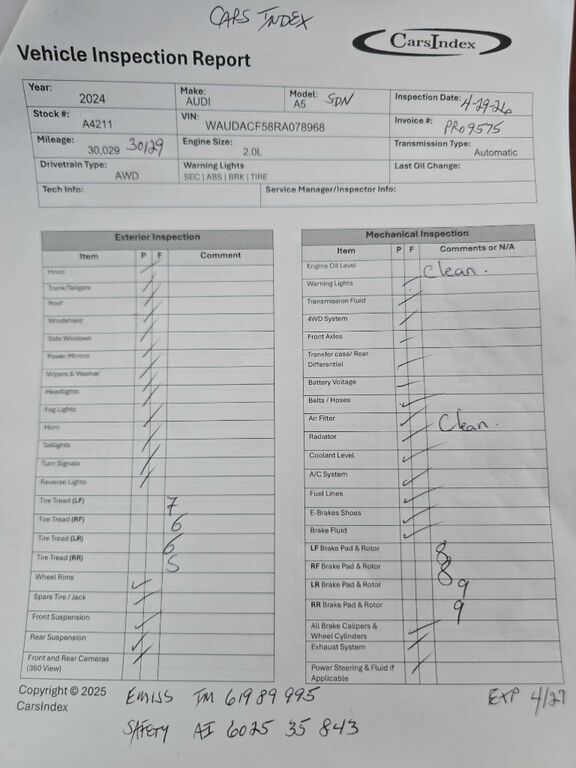 CARS INDEX
CarsIndex
Vehicle Inspection Report
Year: 2024 Make: AUDI Model: A5 SDN Inspection Date: 4-29-26
Stock #: A4211 VIN: WAUDACF58RA078968 Invoice #: PRO9575
Mileage: 30,029 30129 Engine Size: 2.0L Transmission Type: Automatic
Drivetrain Type: AWD Warning Lights SEC | ABS | BRK | TIRE Last Oil Change:
Tech Info: Service Manager/Inspector Info:
Exterior Inspection
Item P F Comment
Hood
Trunk/Tailgate
Roof
Windshield
Side Windows
Power Mirrors
Wipers & Washer
Headlights
Fog Lights
Horn
Taillights
Turn Signals
Reverse Lights
Tire Tread (LF) 7
Tire Tread (RF) 6
Tire Tread (LR) 6
Tire Tread (RR) 5
Wheel Rims
Spare Tire / Jack
Front Suspension
Rear Suspension
Front and Rear Cameras
(360 View)
Mechanical Inspection
Item P F Comments or N/A
Engine Oil Level Clean.
Warning Lights
Transmission Fluid
4WD System
Front Axles
Transfer case/ Rear
Differential
Battery Voltage
Belts / Hoses
Air Filter Clean.
Radiator
Coolant Level
A/C System
Fuel Lines
E-Brakes Shoes
Brake Fluid
LF Brake Pad & Rotor 8
RF Brake Pad & Rotor 8
LR Brake Pad & Rotor 9
RR Brake Pad & Rotor 9
All Brake Calipers &
Wheel Cylinders
Exhaust System
Power Steering & Fluid if
Applicable
Copyright © 2025
CarsIndex
EMISS TM 61989995 EXP 4/27
SAFETY AI 6025 35 843